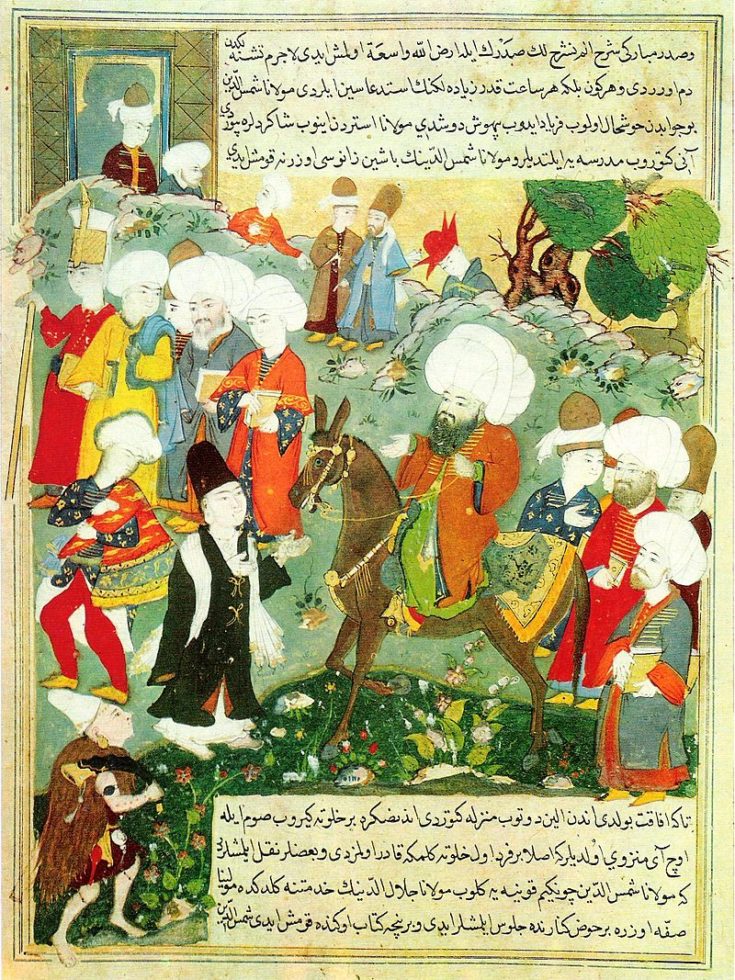 وصدر مباركى شرح الم نشرح لك صدرك ايله ارض الله واسعة اولمش ايدى لاجرم تشنه لكدن
دم اوردى وهركون بلكه هر ساعت قدر زياده لكنك استدعاسين ايلردى مولانا شمس الدين
بو جوابدن خوشحال اولوب فرياد ايدوب بيهوش دوشدى مولانا استردن اينوب شاكردلره بيوردى
آنى كتوروب مدرسه يه ايلتديلر و مولانا شمس الدينك باشين زانوسى اوزرنه قومش ايدى
تا كه افاقت بولدى اندن الين دوتوب منزله كتوردى اندنصكره بر خلوته كيروب صوم ايله
اوچ آى منزوى اولديلر كه اصلا بر فرد اول خلوته كلمكه قادر اولمزدى و بعضلر نقل ايلمشلر
كه مولانا شمس الدين چونكيم قونيه يه كلوب مولانا جلال الدينك خدمتنه كلدكده مولينا
صفه اوزره بر حوض كنارنده جلوس ايلمشلر ايدى و برنيچه كتاب اوكنده قومش ايدى شمس الدين